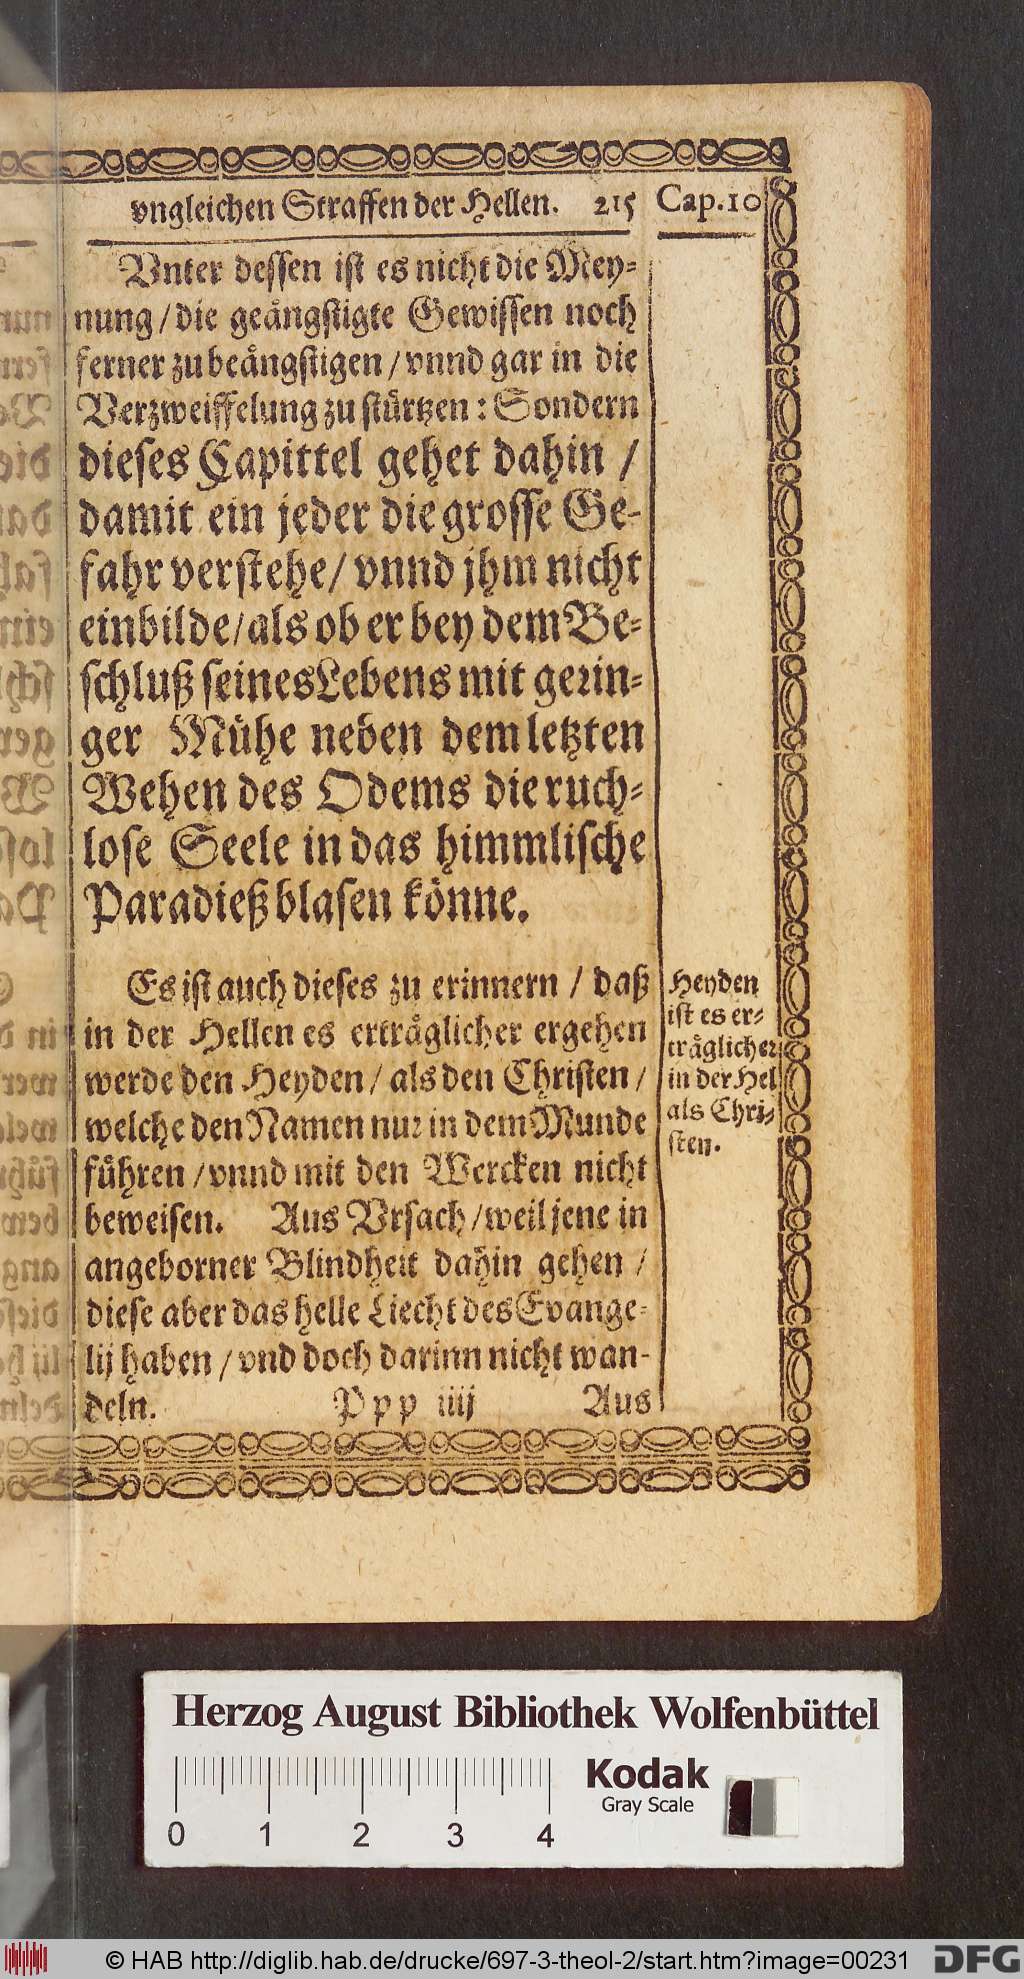 vngleichen Straffen der Hellen. 215 Cap. 10
Vnter dessen ist es nicht die Mey-
nung / die geängstigte Gewissen noch
ferner zu beängstigen / vnnd gar in die
Verzweiffelung zu stürtzen : Sondern
dieses Capittel gehet dahin /
damit ein jeder die grosse Ge-
fahr verstehe / vnnd jhm nicht
einbilde / als ob er bey dem Be-
schluß seines Lebens mit gerin-
ger Mühe neben dem letzten
Wehen des Odems die ruch-
lose Seele in das himmlische
Paradieß blasen könne.
Es ist auch dieses zu erinnern / daß
in der Hellen es erträglicher ergehen
werde den Heyden / als den Christen /
welche den Namen nur in dem Munde
führen / vnnd mit den Wercken nicht
beweisen. Aus Vrsach / weil jene in
angeborner Blindheit dahin gehen /
diese aber das helle Liecht des Evange-
lij haben / vnd doch darinn nicht wan-
deln.
Ppp iiij Aus
Heyden
ist es er-
träglicher
in der Hel
als Chri-
sten.
Herzog August Bibliothek Wolfenbüttel
Kodak
Gray Scale
0 1 2 3 4
© HAB http://diglib.hab.de/drucke/697-3-theol-2/start.htm?image=00231
DFG